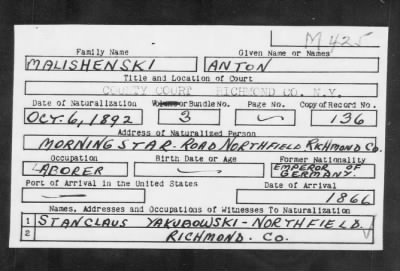 M425
Family Name Given Name or Names
MALISHENSKI ANTON
Title and Location of Court
COUNTY COURT RICHMOND CO. N.Y.
Date of Naturalization Volume or Bundle No. Page No. Copy of Record No.
OCT. 6, 1892 3 136
Address of Naturalized Person
MORNING STAR-ROAD NORTHFIELD RICHMOND CO.
Occupation Birth Date or Age Former Nationality
LABORER EMPEROR OF GERMANY.
Port of Arrival in the United States Date of Arrival
1866
Names, Addresses and Occupations of Witnesses To Naturalization
1 STANCLAUS YAKUBOWSKI-NORTHFIELD.
2 RICHMOND. CO.